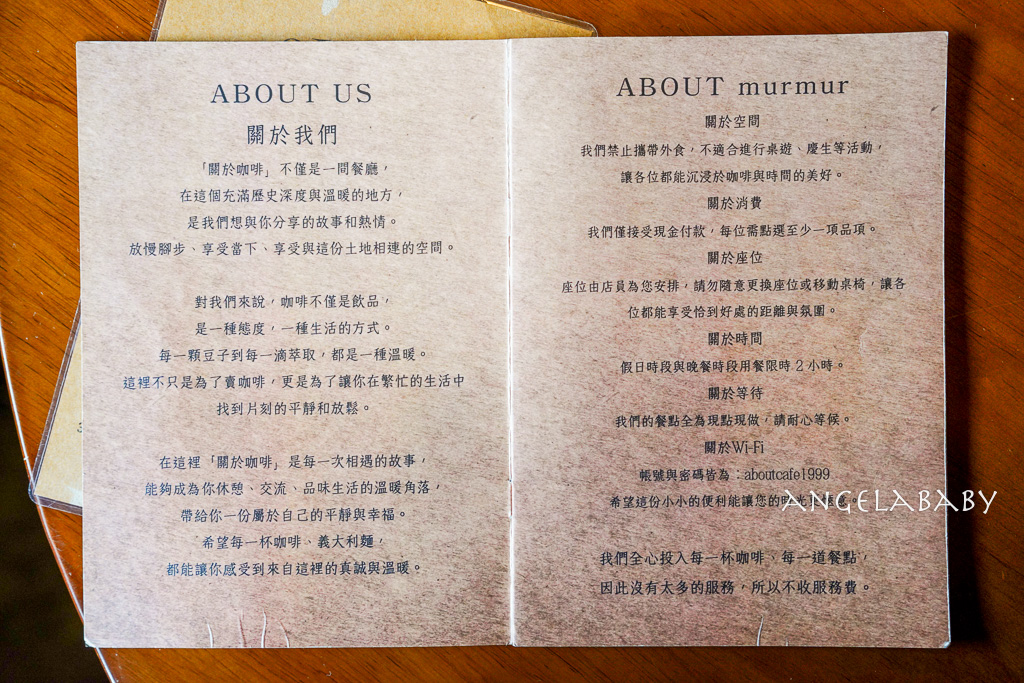 ABOUT US
關於我們
「關於咖啡」不僅是一間餐廳，
在這個充滿歷史深度與溫暖的地方，
是我們想與你分享的故事和熱情。
放慢腳步、享受當下、享受與這份土地相連的空間。
對我們來說，咖啡不僅是飲品，
是一種態度，一種生活的方式。
每一顆豆子到每一滴萃取，都是一種溫暖。
這裡不只是為了賣咖啡，更是為了讓你在繁忙的生活中
找到片刻的平靜和放鬆。
在這裡「關於咖啡」是每一次相遇的故事，
能夠成為你休憩、交流、品味生活的溫暖角落，
帶給你一份屬於自己的平靜與幸福。
希望每一杯咖啡、義大利麵，
都能讓你感受到來自這裡的真誠與溫暖。
ABOUT murmur
關於空間
我們禁止攜帶外食，不適合進行桌遊、慶生等活動，
讓各位都能沉浸於咖啡與時間的美好。
關於消費
我們僅接受現金付款，每位需點選至少一項品項。
關於座位
座位由店員為您安排，請勿隨意更換座位或移動桌椅，讓各
位都能享受恰到好處的距離與氛圍。
關於時間
假日時段與晚餐時段用餐限時 2 小時。
關於等待
我們的餐點全為現點現做，請耐心等候。
關於Wi-Fi
帳號與密碼皆為：aboutcafe1999
希望這份小小的便利能讓您的時光
ANGELABABY
我們全心投入每一杯咖啡、每一道餐點，
因此沒有太多的服務，所以不收服務費。